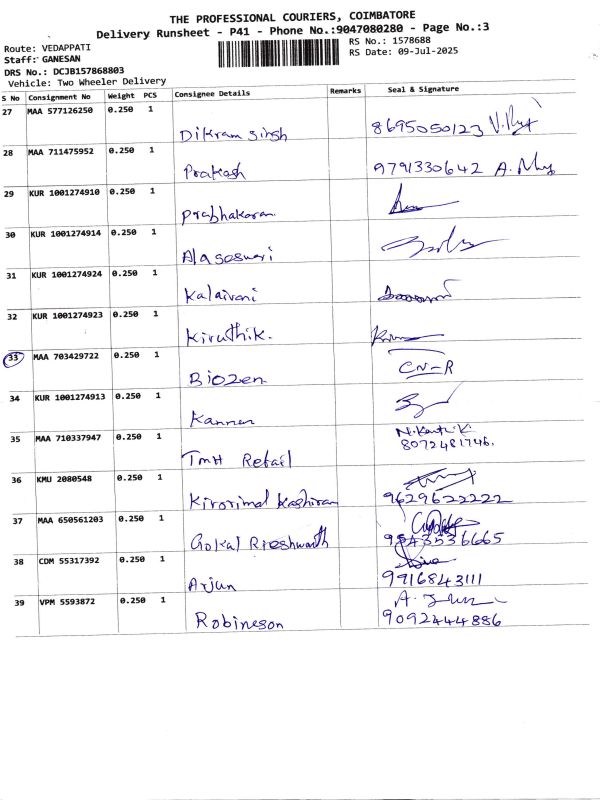 THE PROFESSIONAL COURIERS, COIMBATORE
Delivery Runsheet - P41 - Phone No.:9047080280 - Page No.:3
Route: VEDAPPATI
RS No.: 1578688
Staff: GANESAN
RS Date: 09-Jul-2025
DRS No.: DCJB157868803
Vehicle: Two Wheeler Delivery
S No Consignment No Weight PCS Consignee Details Remarks Seal & Signature
27 MAA 577126250 0.250 1
Dikram Singh 8695050123
28 MAA 711475952 0.250 1
Prakash 9791330642
29 KUR 1001274910 0.250 1
Prabhakaran
30 KUR 1001274914 0.250 1
Alageswari
31 KUR 1001274924 0.250 1
Kalaivani
32 KUR 1001274923 0.250 1
Kiruthik.
33 MAA 703429722 0.250 1
Biozen CN-R
34 KUR 1001274913 0.250 1
Kannan
35 MAA 710337947 0.250 1 N. Karthi K
8072481746.
TMH Retail
36 KMU 2080548 0.250 1
Kirorimal Kashiram 9629622222
37 MAA 650561203 0.250 1
Gokal 9543536665
38 CDM 55317392 0.250 1
Arjun 9916843111
39 VPM 5593872 0.250 1
Robineson 9092444886